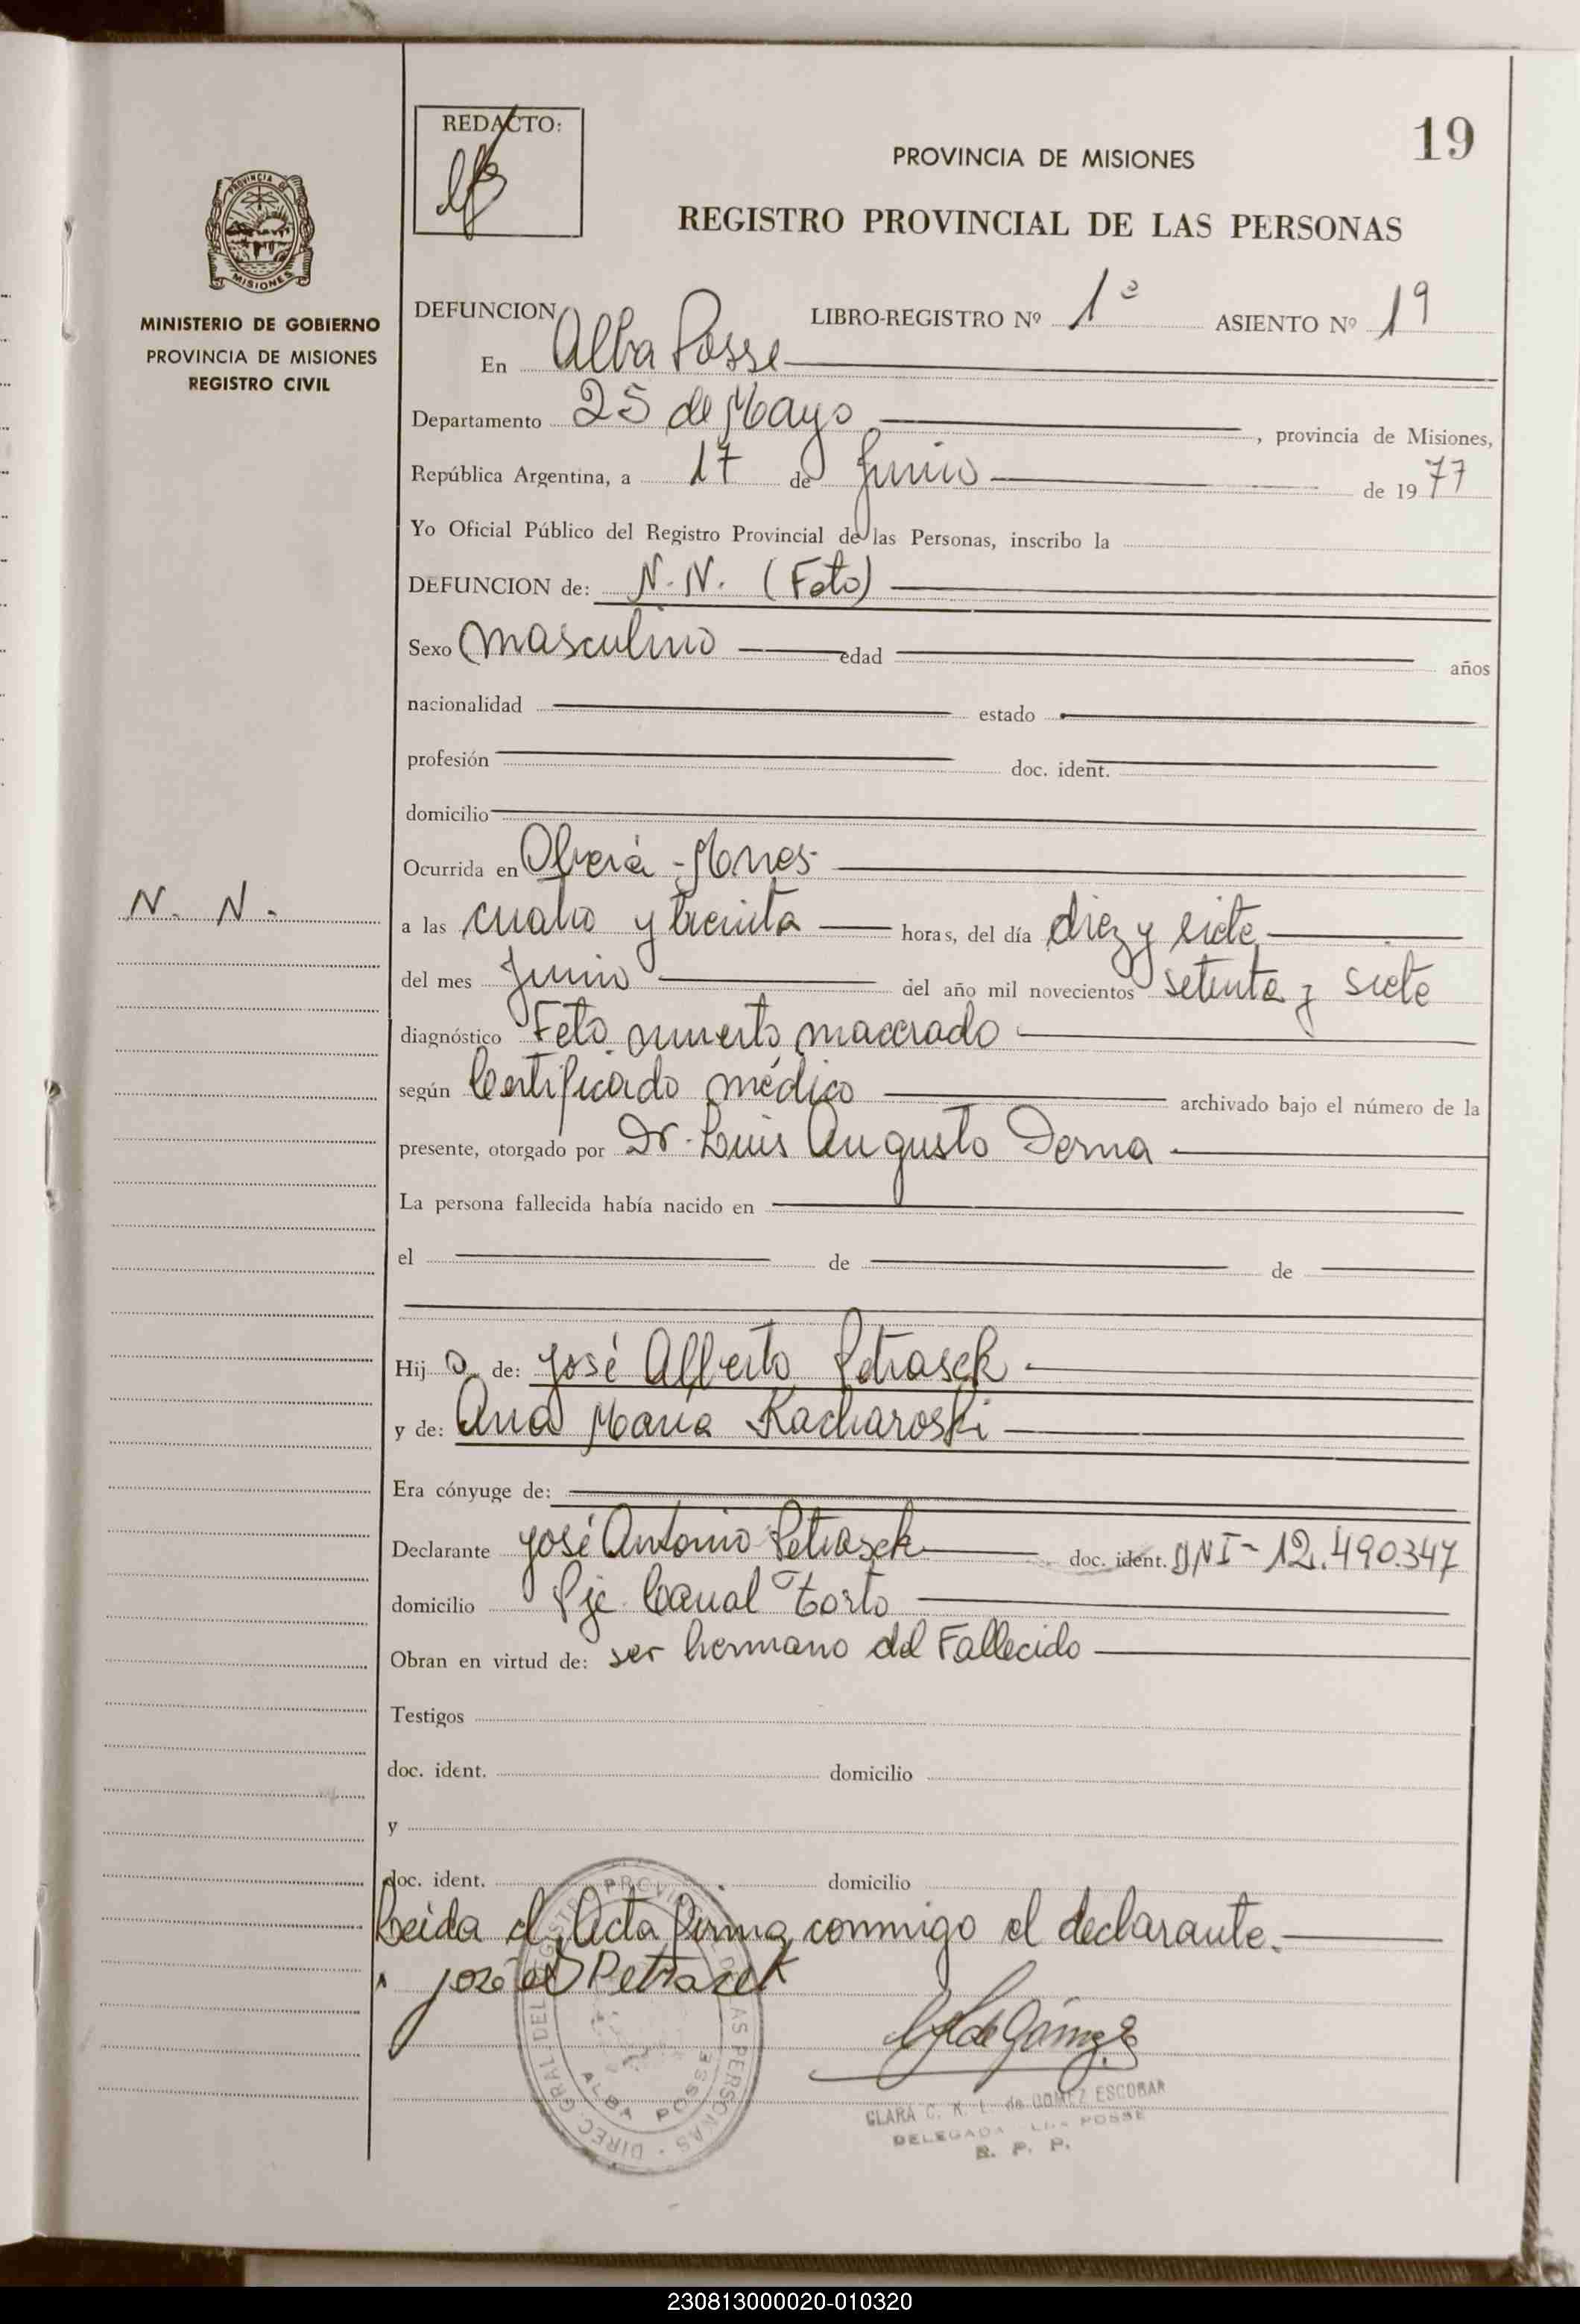 REDACTO:
19
PROVINCIA DE MISIONES
REGISTRO PROVINCIAL DE LAS PERSONAS
PROVINCIA DE
MISIONES
MINISTERIO DE GOBIERNO
PROVINCIA DE MISIONES
REGISTRO CIVIL
DEFUNCION LIBRO-REGISTRO Nº 1º ASIENTO Nº 19
En Alba Posse
Departamento 25 de Mayo, provincia de Misiones,
República Argentina, a 17 de Junio de 1977
Yo Oficial Público del Registro Provincial de las Personas, inscribo la
DEFUNCION de: N.N. (Feto)
Sexo Masculino edad años
nacionalidad estado
profesión doc. ident.
domicilio
Ocurrida en Oberá -
N. N.
a las cuatro y treinta horas, del día diez y siete
del mes Junio del año mil novecientos setenta y siete
diagnóstico Feto muerto macerado
según Certificado médico archivado bajo el número de la
presente, otorgado por Dr. Luis Augusto Derna
La persona fallecida había nacido en
el de de
Hijo de: José Alberto Petrasek
y de: Ana Maria Kacharoski
Era cónyuge de:
Declarante José Antonio Petrasek doc. ident. DNI-12.490.347
domicilio Pje. Canal Torto
Obran en virtud de: ser hermano del Fallecido
Testigos
doc. ident. domicilio
y
doc. ident. domicilio
Leida el Acta Firma conmigo el declarante.
José Petrasek
DIREC. GRAL. DEL REGISTRO PROVINCIAL DE LAS PERSONAS
ALBA POSSE
de Gómez
CLARA C. K. L. de GOMEZ ESCOBAR
DELEGADA POSSE
R. P. P.
230813000020-010320